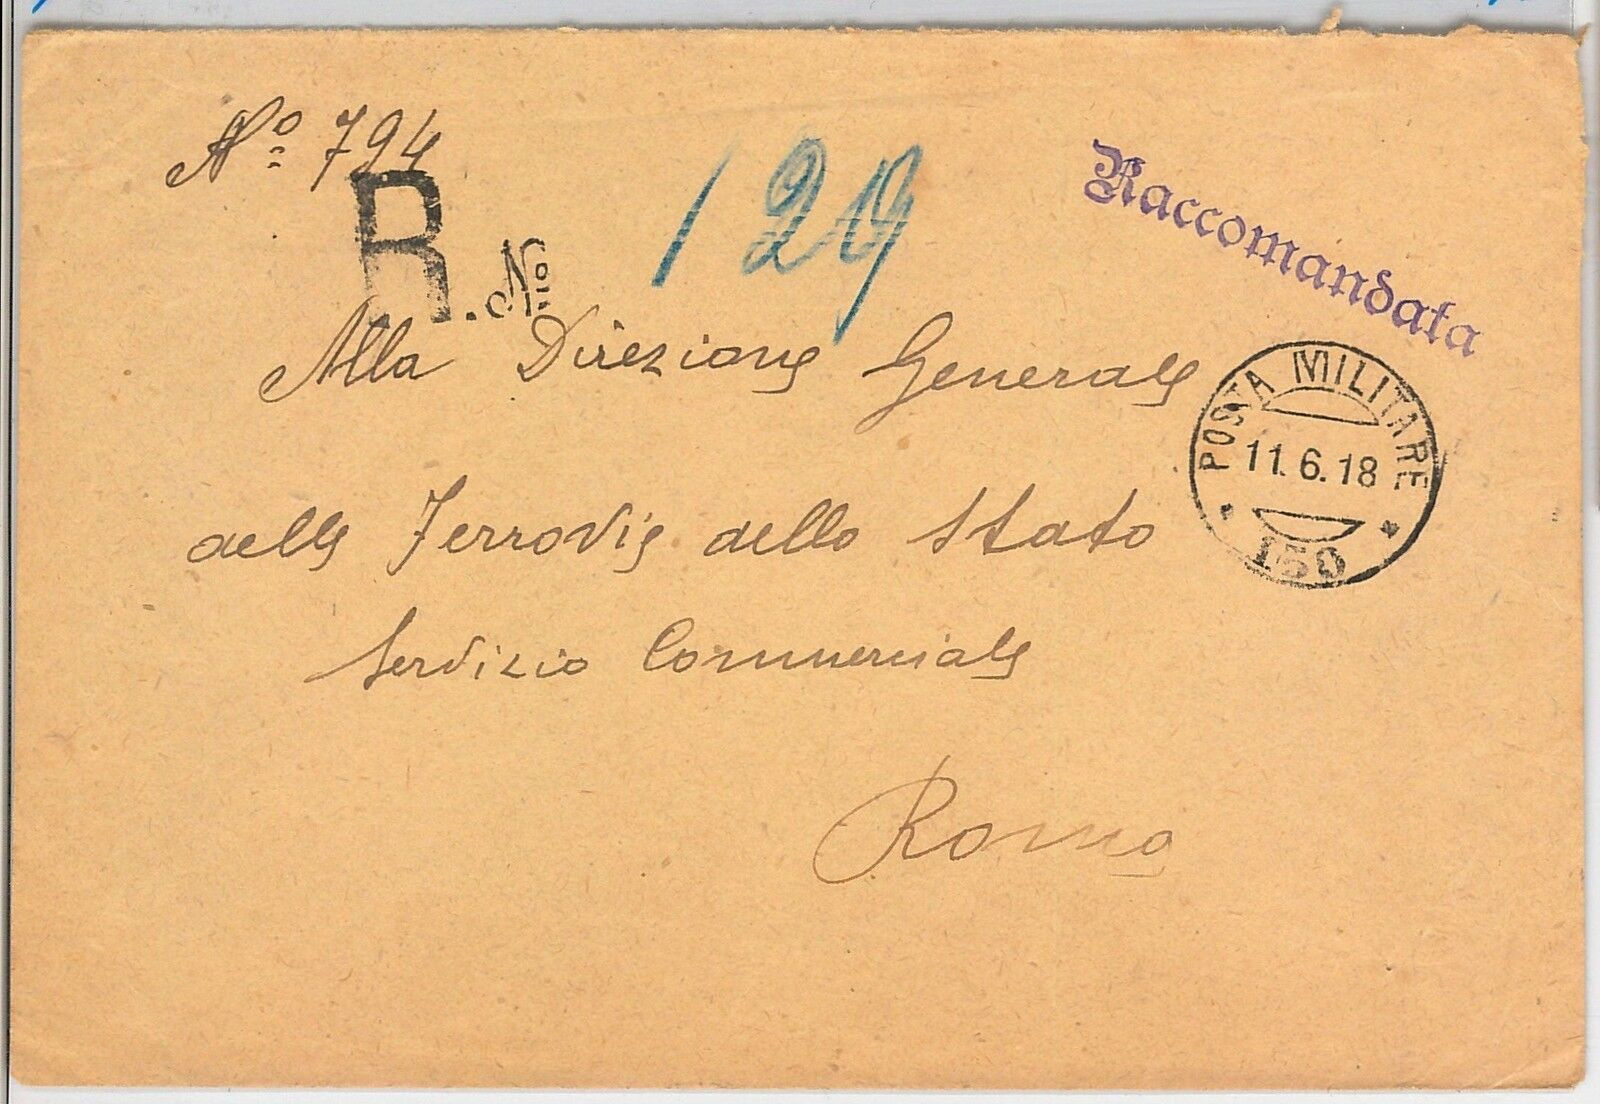 Nº 794
R. Nº 129
Raccomandata
Alla Direzione Generale
POSTA MILITARE
11.6.18
150
delle Ferrovie dello Stato
Servizio Commerciale
Roma